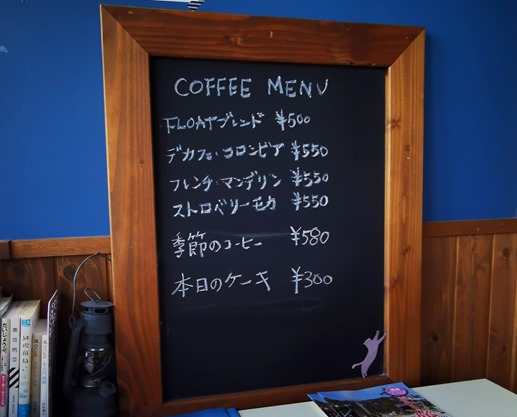 COFFEE MENU
FLOATブレンド ¥500
デカフェ・コロンビア ¥550
フレンチ・マンデリン ¥550
ストロベリーモカ ¥550
季節のコーヒー ¥580
本日のケーキ ¥300